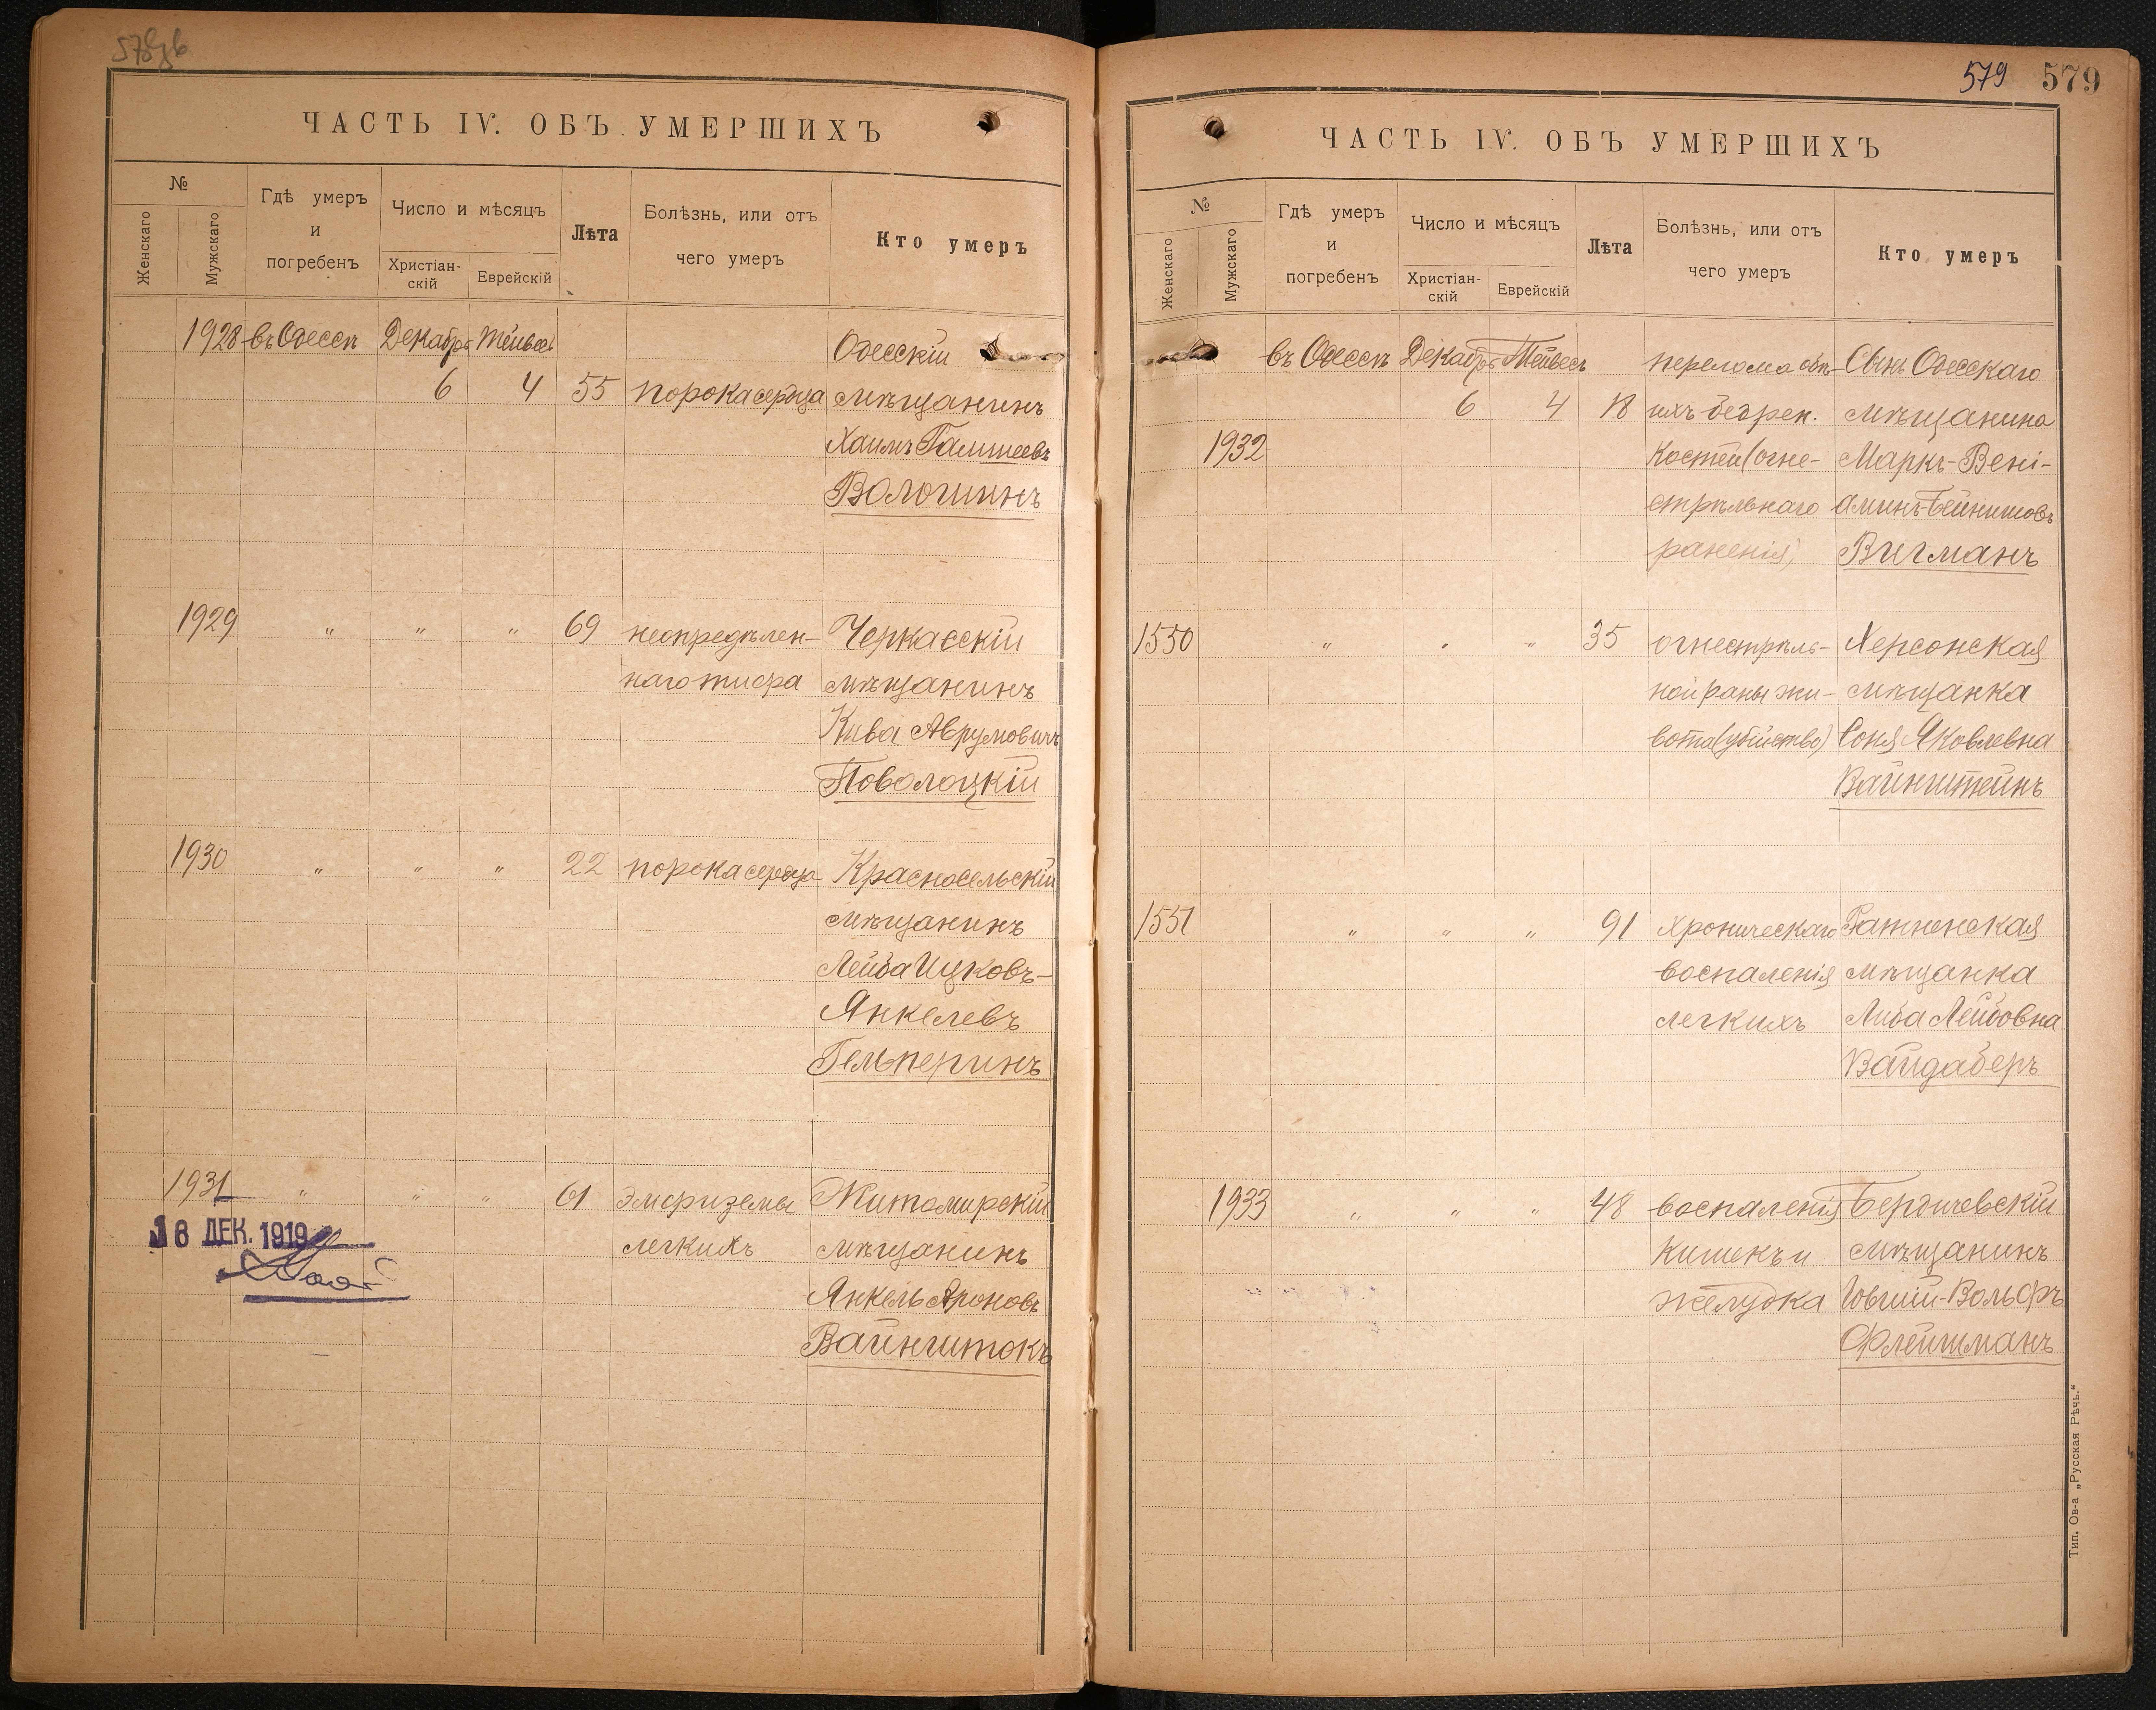 ЧАСТЬ IV. ОБЪ УМЕРШИХЪ
№
Женскаго
Мужскаго
Гдѣ умеръ
и
погребенъ
Число и мѣсяцъ
Христіан-
скій
Еврейскій
Лѣта
Болѣзнь, или отъ
чего умеръ
Кто умеръ
1928 въ Одессѣ Декабрь Тейвесъ Одесскій
6 4 55 порока сердца мѣщанинъ
Хаимъ
Волошинъ
1929 " " " 69 неопредѣлен- Черкасскій
наго тифа мѣщанинъ
Кива Аврумовичъ
Поволоцкій
1930 " " " 22 порока сердца Красносельскій
мѣщанинъ
Лейба Ицковъ-
Янкелевъ
Гельперинъ
1931 " " " 61 эмфиземы Житомирскій
легкихъ мѣщанинъ
18 ДЕК. 1919
Янкель Ароновъ
Вайнштокъ
579 579
ЧАСТЬ IV. ОБЪ УМЕРШИХЪ
№
Женскаго
Мужскаго
Гдѣ умеръ
и
погребенъ
Число и мѣсяцъ
Христіан-
скій
Еврейскій
Лѣта
Болѣзнь, или отъ
чего умеръ
Кто умеръ
въ Одессѣ Декабрь Тейвесъ перелома обѣ- Сынъ Одесскаго
6 4 18 ихъ бедрен. мѣщанина
1932 костей (огне- Маркъ-Вені-
стрѣльнаго аминъ Бейнишовъ
раненія) Вигманъ
1550 " " " 35 огнестрѣль- Херсонская
ной раны жи- мѣщанка
вота (убійство) Соня Яковлевна
Вайнштейнъ
1551 " " " 91 хроническаго
воспаленія мѣщанка
легкихъ Либа Лейбовна
Вайдаберъ
1933 " " " 48 воспаленія Бердичевскій
кишекъ и мѣщанинъ
желудка Іовшій-Вольфъ
Флейшманъ
Тип. Ов-а „Русская Рѣчь.“